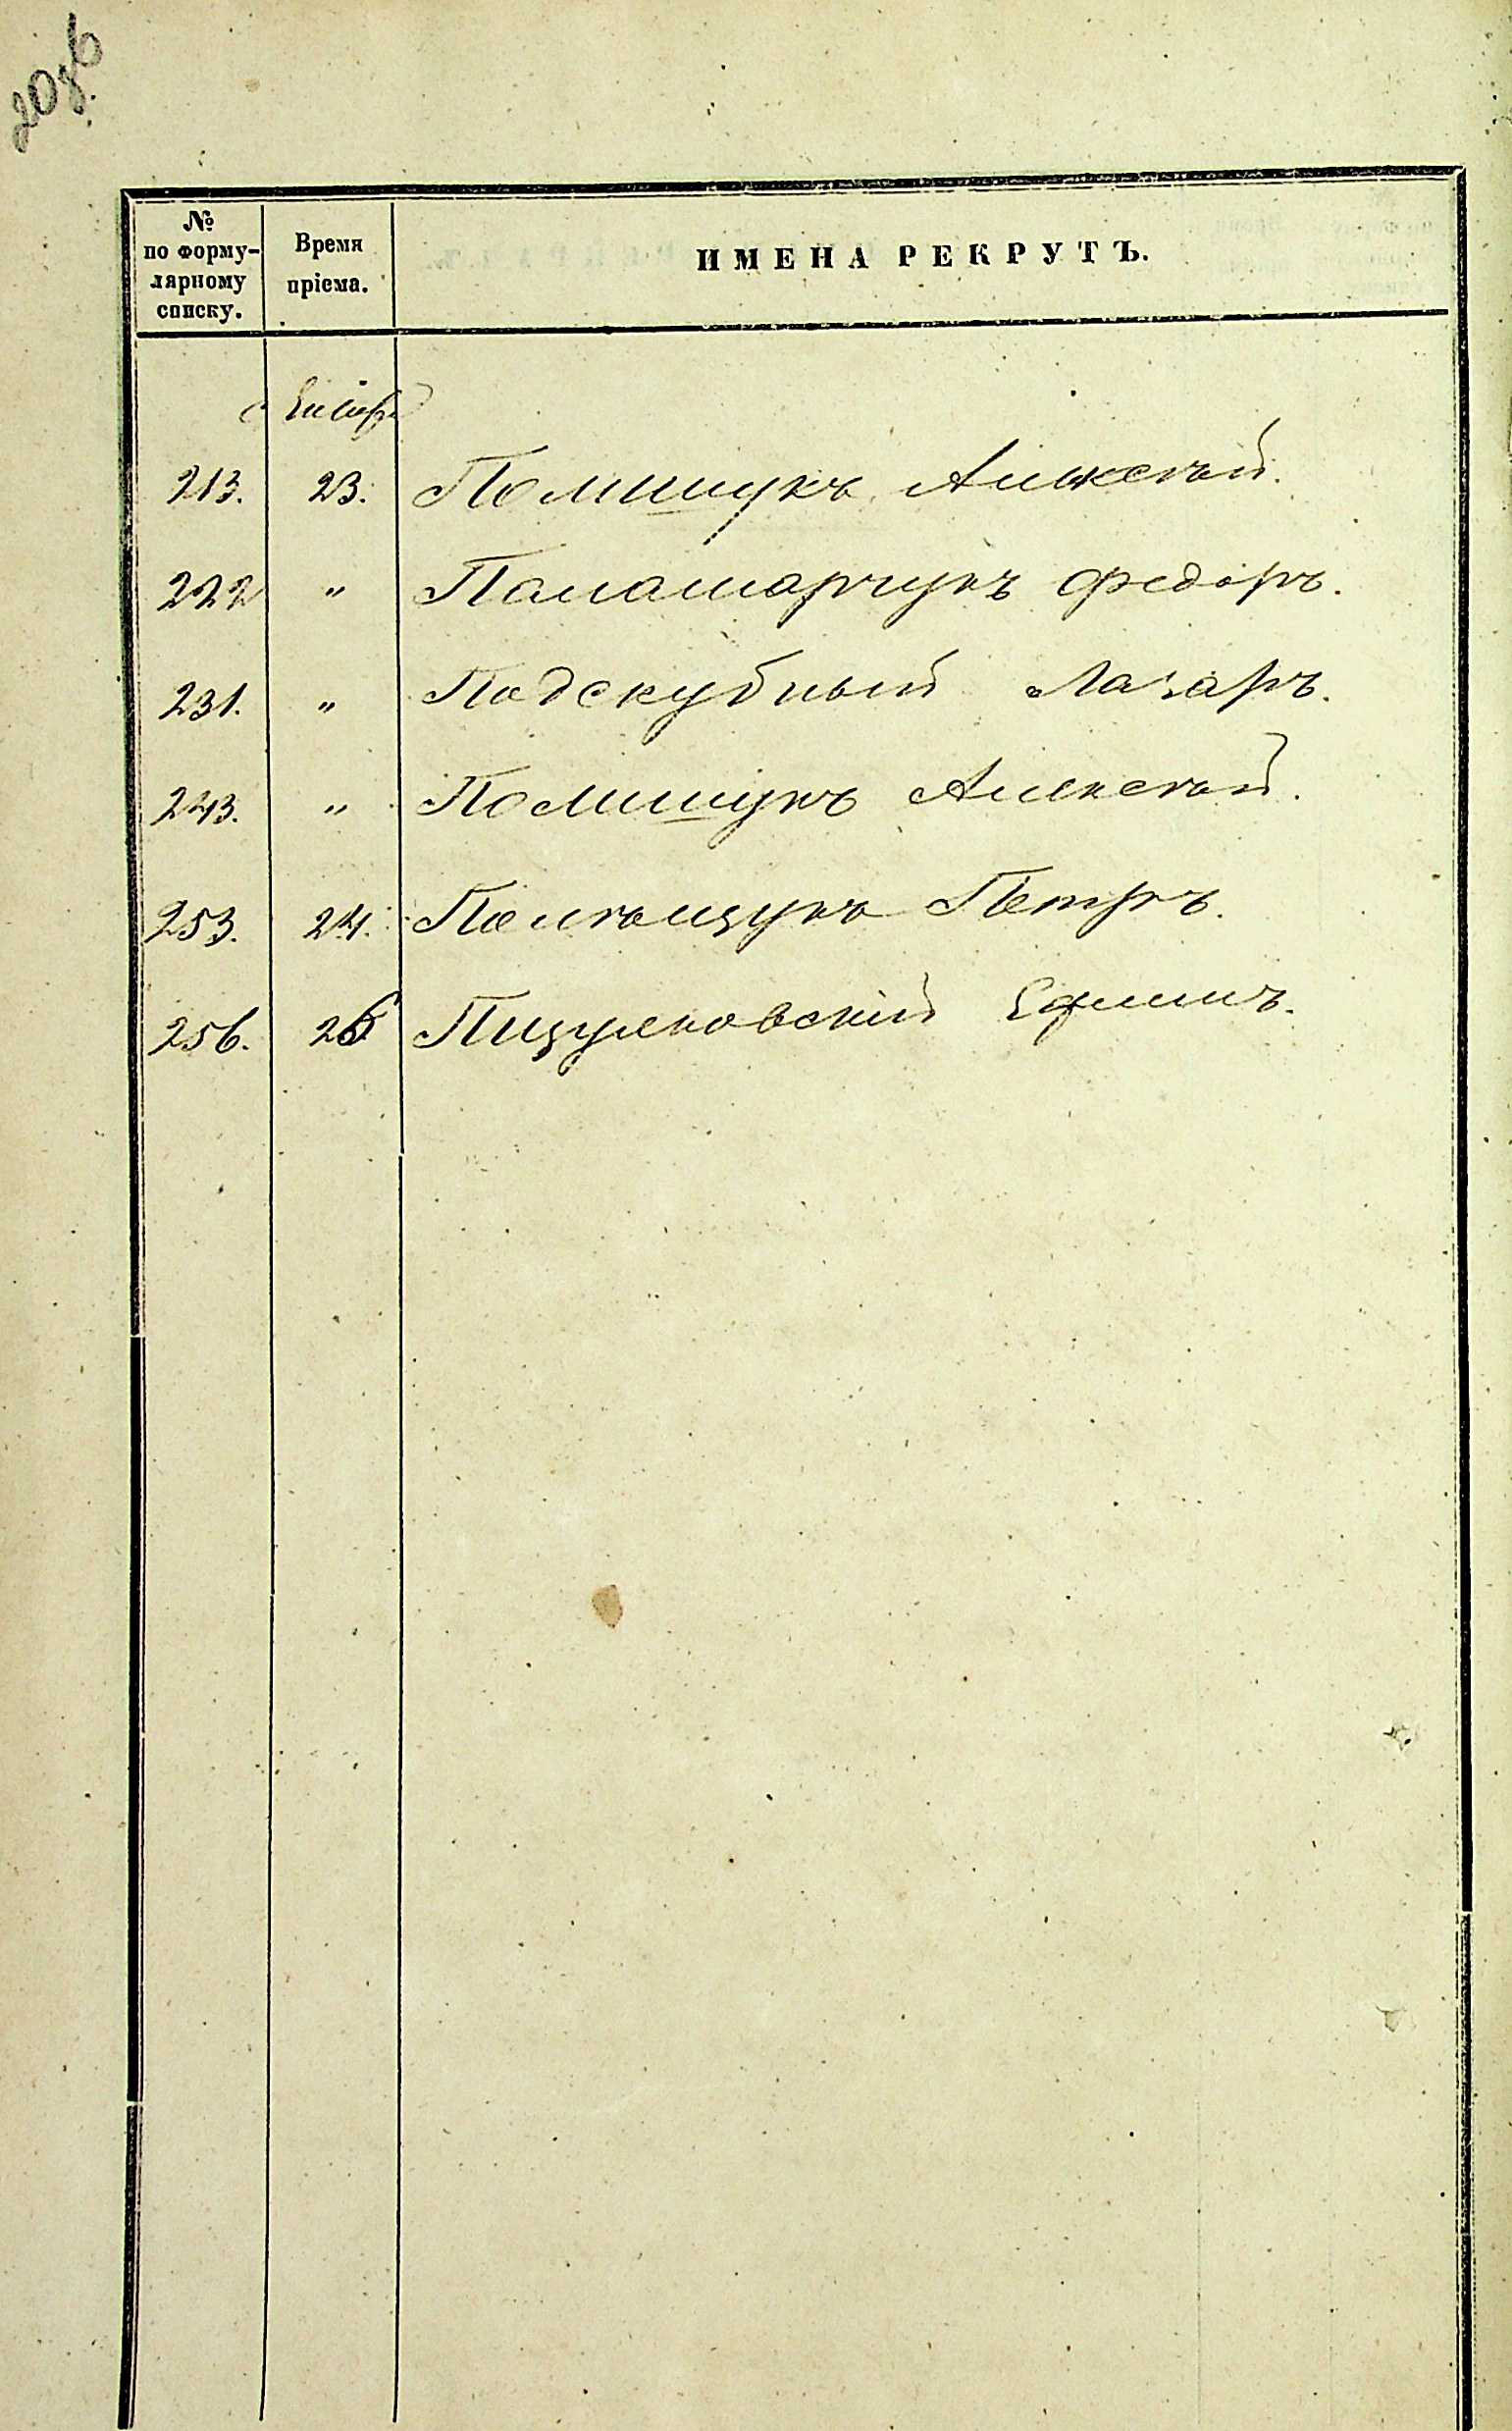 20об
№ по форму-лярному списку.
Время пріема.
ИМЕНА РЕКРУТЪ.
Января
213. 23. Полишукъ Алексѣй.
222 " Паламарчукъ Федоръ.
231. " Подскубный Лазарь.
243. " Полишукъ Алексѣй.
253. 24. Полѣщукъ Петръ.
256. 26 Пицулковскій Ефимъ.